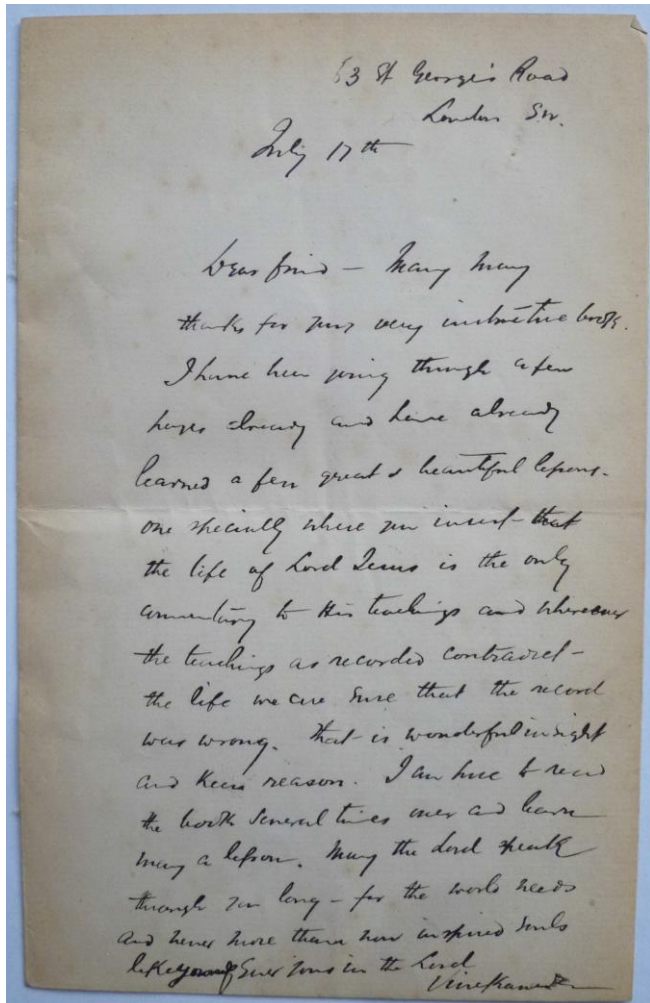 63 St George's Road
London SW.
July 17th
Dear friend – Many Many
thanks for your very instructive book.
I have been going through a few
pages already and have already
learned a few great & beautiful lessons.
one specially where you insist that
the life of Lord Jesus is the only
commentary to His teachings and wherever
the teachings as recorded contradict
the life we are sure that the record
was wrong. That is wonderful insight
and keen reason. I am sure to read
the book several times over and learn
many a lesson. May the Lord speak
through you long – for the world needs
and never more than now inspired souls
like yours Ever yours in the Lord
Vivekananda